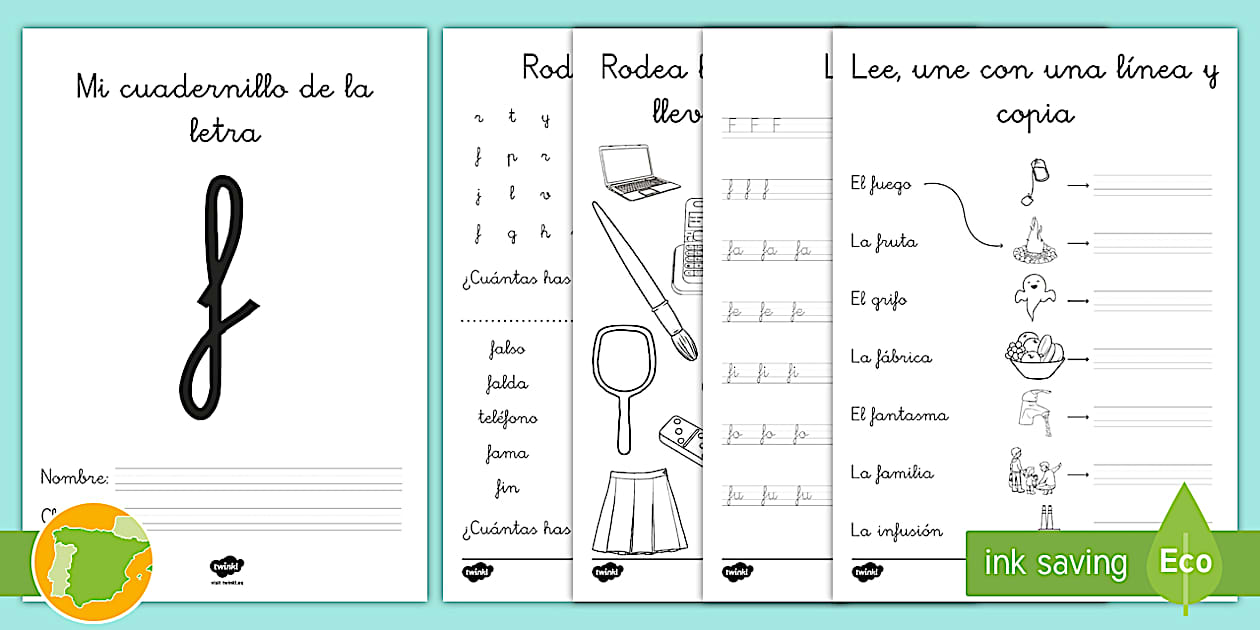 Mi cuadernillo de la
letra
f
Nombre:
twinkl
visit twinkl.es
r t y
f p r
j l v
f g h
¿Cuántas has
falso
falda
teléfono
fama
fin
¿Cuántas has
twinkl
Rodea
twinkl
F F F
f f f
fa fa fa
fe fe fe
fi fi fi
fo fo fo
fu fu fu
twinkl
Lee, une con una línea y
copia
El fuego
La fruta
El grifo
La fábrica
El fantasma
La familia
La infusión
twinkl
ink saving
Eco